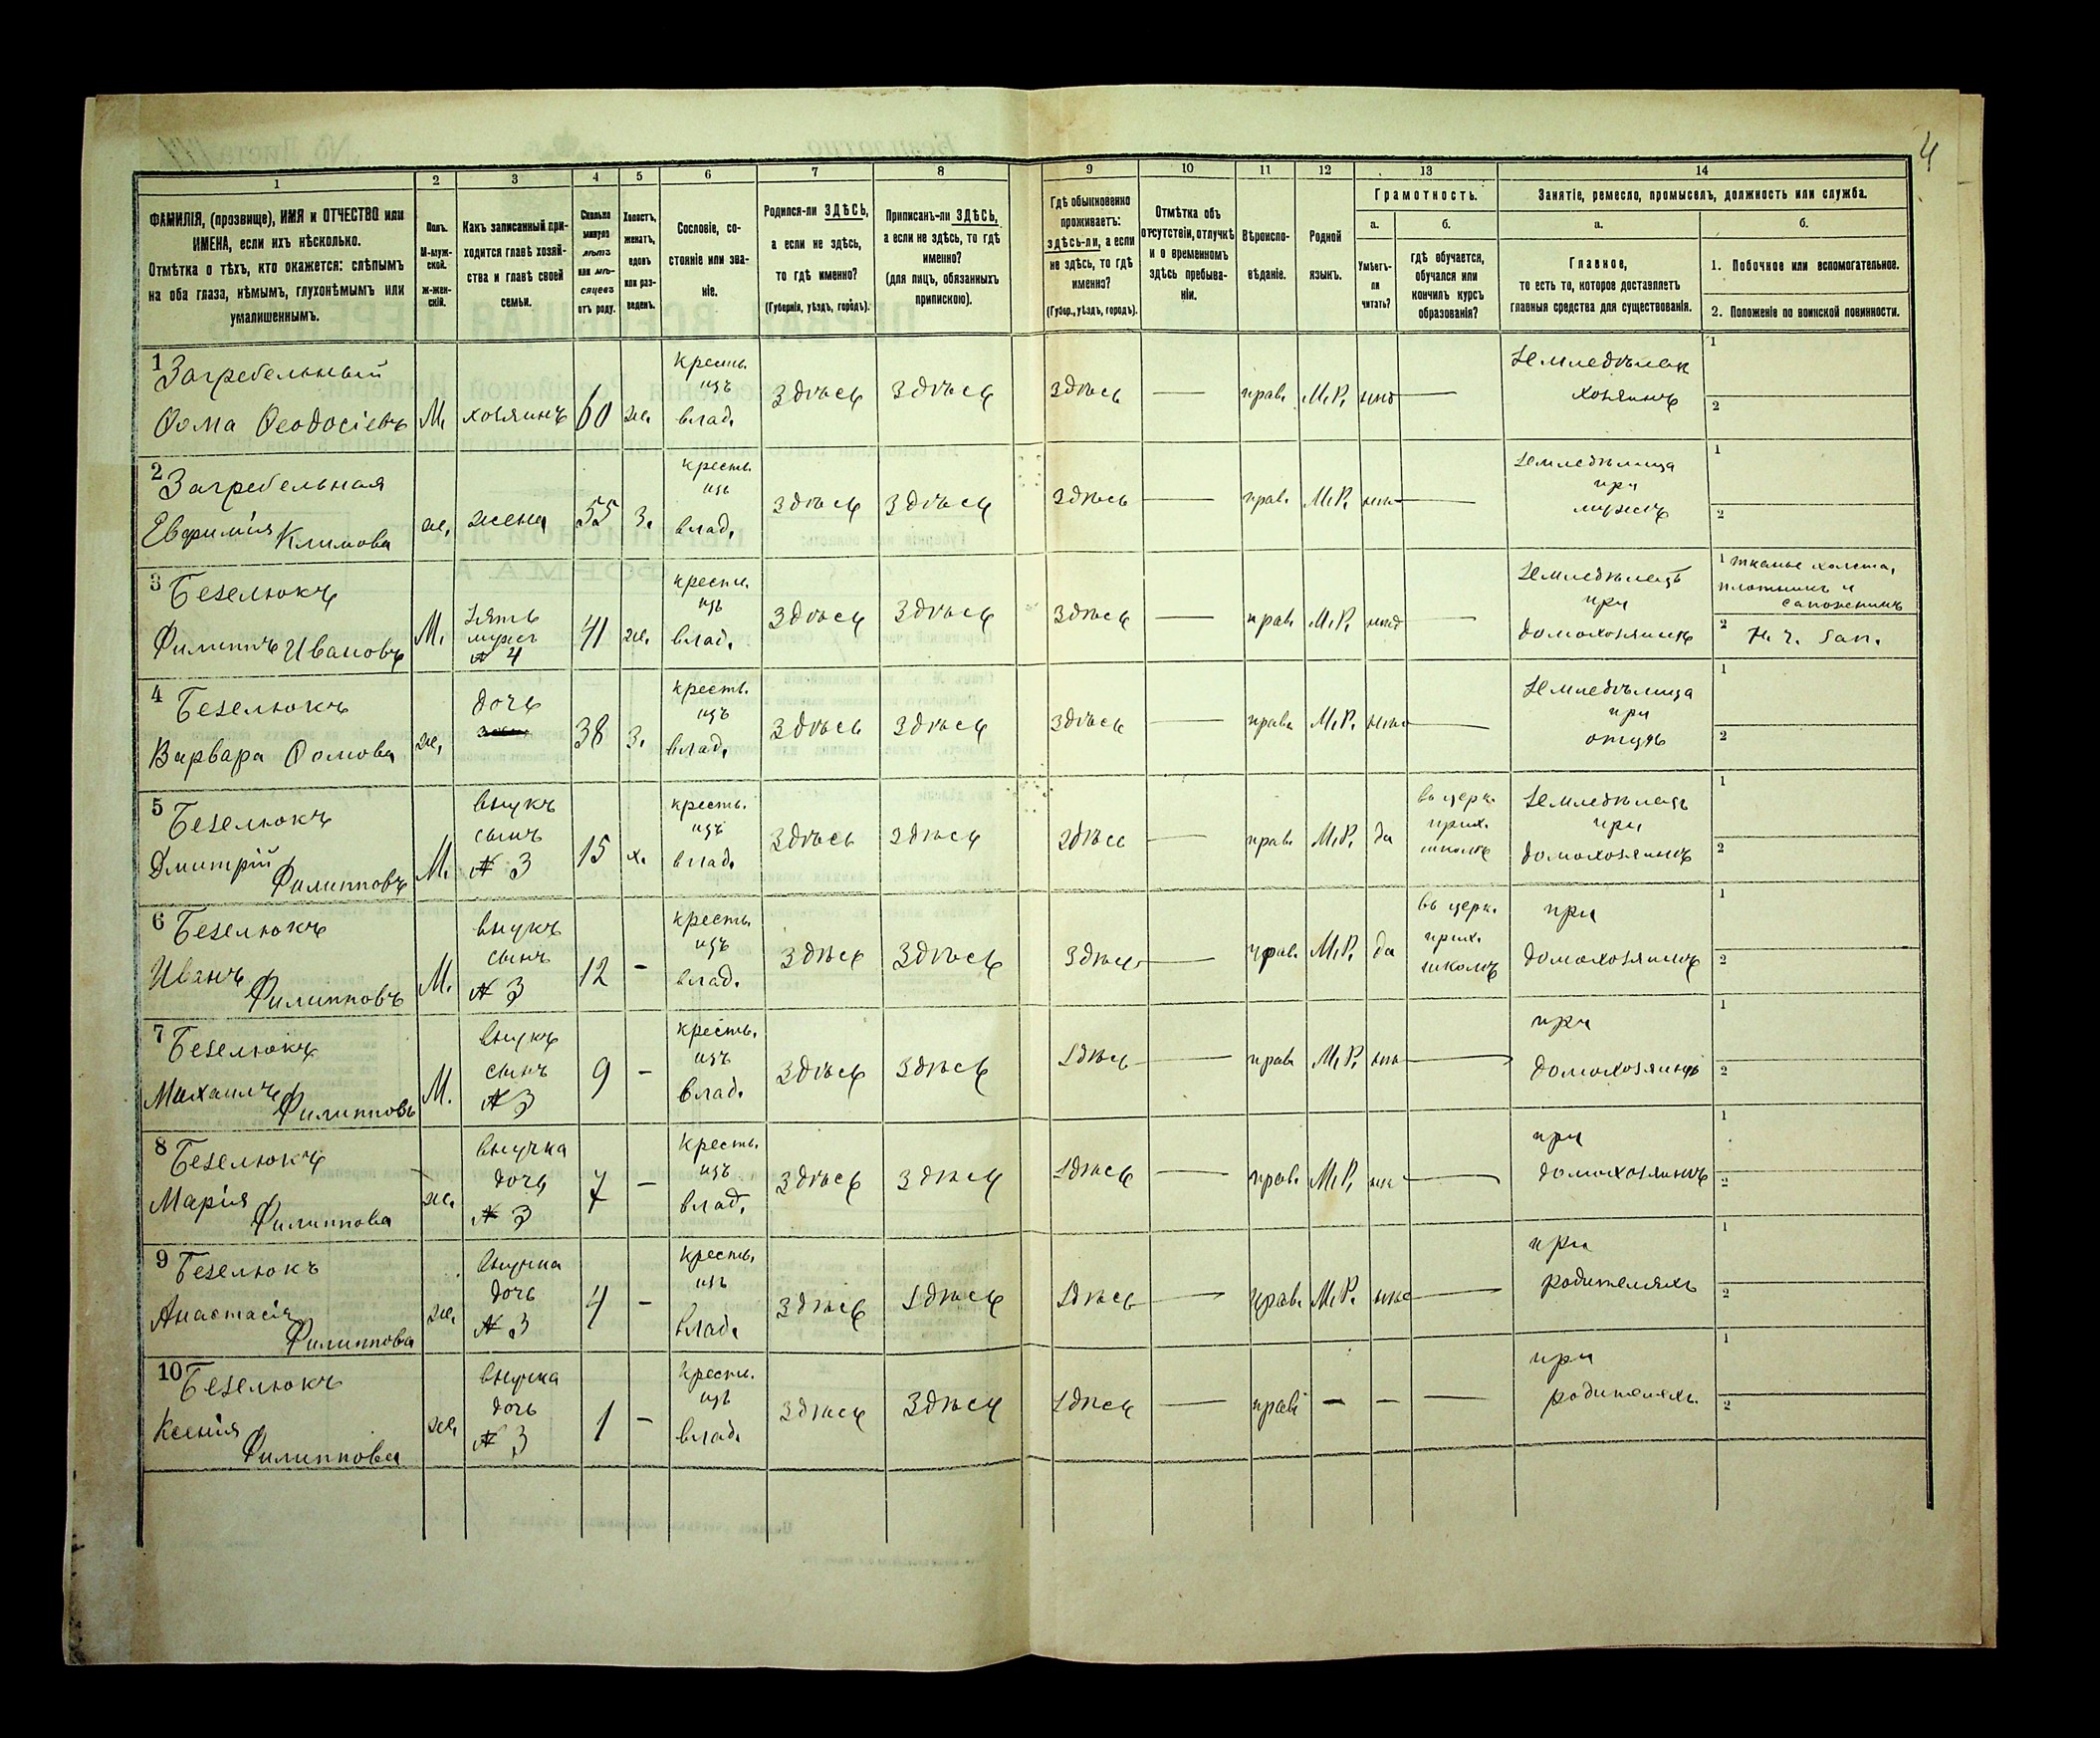 4
1 2 3 4 5 6 7 8 9 10 11 12 13 14
ФАМИЛІЯ, (прозвище), ИМЯ и ОТЧЕСТВО или ИМЕНА, если ихъ нѣсколько.
Отмѣтка о тѣхъ, кто окажется: слѣпымъ на оба глаза, нѣмымъ, глухонѣмымъ или умалишеннымъ.
Полъ. М-мужской. Ж-женскій.
Какъ записанный приходится главѣ хозяйства и главѣ своей семьи.
Сколько минуло лѣтъ или мѣсяцевъ отъ роду.
Холостъ, женатъ, вдовъ или разведенъ.
Сословіе, состояніе или званіе.
Родился-ли ЗДѢСЬ, а если не здѣсь, то гдѣ именно? (Губернія, уѣздъ, городъ).
Приписанъ-ли ЗДѢСЬ, а если не здѣсь, то гдѣ именно? (для лицъ, обязанныхъ припискою).
Гдѣ обыкновенно проживаетъ: здѣсь-ли, а если не здѣсь, то гдѣ именно? (Губер., уѣздъ, городъ).
Отмѣтка объ отсутствіи, отлучкѣ и о временномъ здѣсь пребываніи.
Вѣроисповѣданіе.
Родной языкъ.
Грамотность.
а. Умѣетъ-ли читать?
б. гдѣ обучается, обучался или кончилъ курсъ образованія?
Занятіе, ремесло, промыселъ, должность или служба.
а. Главное, то есть то, которое доставляетъ главныя средства для существованія.
б.
1. Побочное или вспомогательное.
2. Положеніе по воинской повинности.
1 Загребельный Ѳома Ѳеодосіевъ М. хозяинъ 60 ж. кресть. изъ влад. Здѣсь Здѣсь Здѣсь — прав. М.Р. — Земледѣлец хозяинъ 1 2
2 Загребельная Евфимія Климова ж. жена 55 з. кресть. изъ влад. Здѣсь Здѣсь Здѣсь — прав. М.Р. — земледѣлица при мужѣ 1 2
3 Безелюкъ Филиппъ Ивановъ М. зять мужъ № 4 41 ж. кресть. изъ влад. Здѣсь Здѣсь Здѣсь — прав. М.Р. — земледѣлецъ при домохозяинѣ 1 тканье холста, плотникъ и сапожникъ 2 Н. ч. зап.
4 Безелюкъ Варвара Ѳомова ж. дочь 38 з. кресть. изъ влад. Здѣсь Здѣсь Здѣсь — прав. М.Р. — земледѣлица при отцѣ 1 2
5 Безелюкъ Дмитрій Филипповъ М. внукъ сынъ № 3 15 х. кресть. изъ влад. Здѣсь Здѣсь Здѣсь — прав. М.Р. да въ церк. прих. школѣ земледѣлецъ при домохозяинѣ 1 2
6 Безелюкъ Иванъ Филипповъ М. внукъ сынъ № 3 12 - кресть. изъ влад. Здѣсь Здѣсь Здѣсь — прав. М.Р. да въ церк. прих. школѣ при домохозяинѣ 1 2
7 Безелюкъ Михаилъ Филипповъ М. внукъ сынъ № 3 9 - кресть. изъ влад. Здѣсь Здѣсь Здѣсь — прав. М.Р. — при домохозяинѣ 1 2
8 Безелюкъ Марія Филиппова ж. внучка дочь № 3 7 - кресть. изъ влад. Здѣсь Здѣсь Здѣсь — прав. М.Р. — при домохозяинѣ 1 2
9 Безелюкъ Анастасія Филиппова ж. внучка дочь № 3 4 - кресть. изъ влад. Здѣсь Здѣсь Здѣсь — прав. М.Р. — при родителяхъ 1 2
10 Безелюкъ Ксенія Филиппова ж. внучка дочь № 3 1 - кресть. изъ влад. Здѣсь Здѣсь Здѣсь — прав. - - — при родителяхъ. 1 2